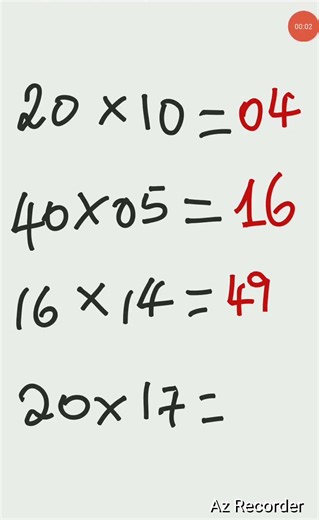 00:02
20 × 10 = 04
40 × 05 = 16
16 × 14 = 49
20 × 17 =
Az Recorder